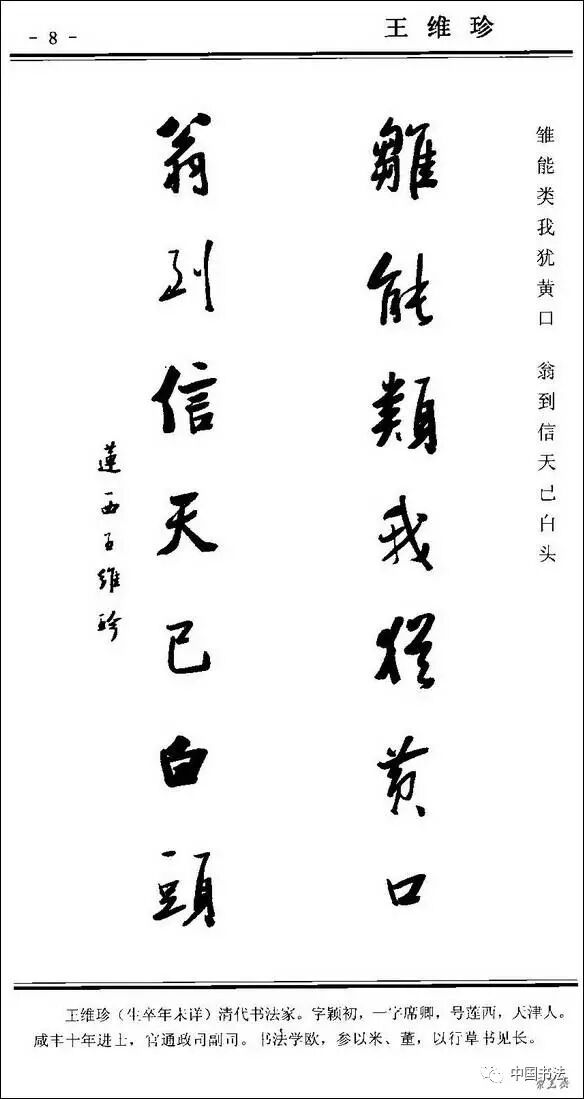 - 8 -
王维珍
雏能类我犹黄口 翁到信天已白头
雛能類我猶黄口
翁到信天已白頭
蓮西王維珍
王维珍（生卒年未详）清代书法家。字颖初，一字席卿，号莲西，天津人。
咸丰十年进士，官通政司副司。书法学欧，参以米、董，以行草书见长。
中国书法